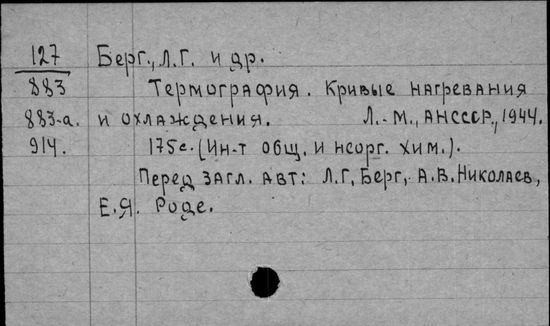 127 Берг, Л.Г. и др.
883 Термография. Кривые нагревания
883-а. и охлаждения. Л.-М., АНСССР, 1944.
914. 175с. (Ин-т общ. и неорг. хим.).
Перед загл. авт: Л.Г. Берг, А.В. Николаев,
Е.Я. Роде.